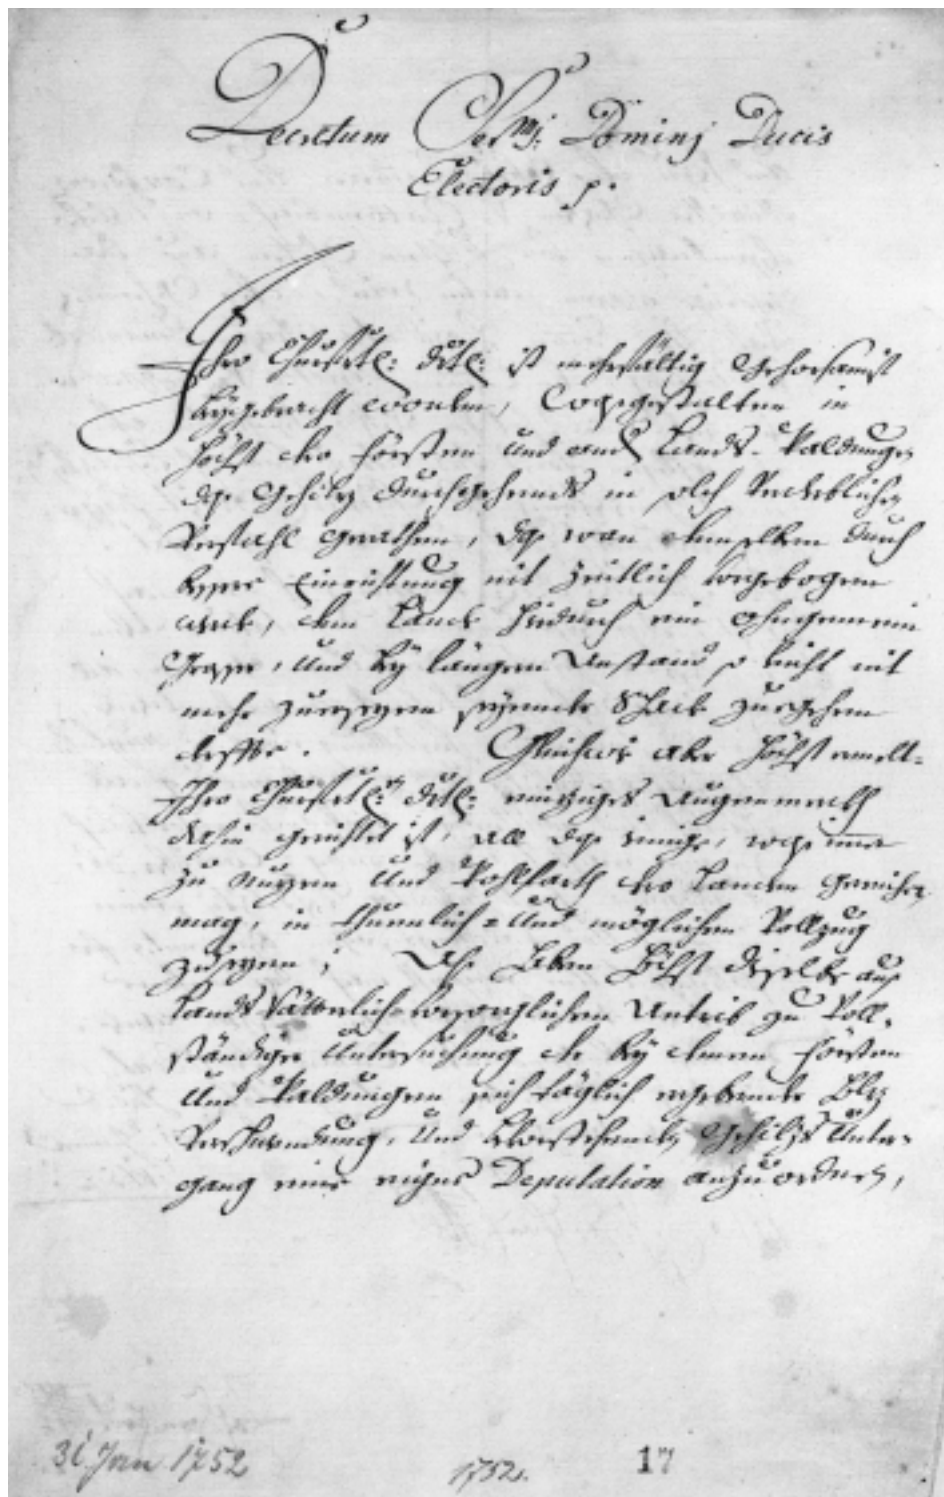 Decretum Ser.mj: Dominj Ducis
Electoris p.
Ihro Churfrtl: Drtl: ist mehrfältig gehorsamst
beygebracht worden, wasgestalten in
höchst dero Försten und and. Lands-Waldungen
das Gehilz durchgehends in solch Verderblichen
Verfahl gerathen, das wan demselben durch
bessere Einrichtung nit zeitlich vorgebogen
wird, dem Landt hirdurch ein ohngemein
Grosser, und bey längern Anstand so leicht nit
mehr zuersezen seyender Schad zuegehen
derffte. Gleichwie aber höchst ernelt-
Ihro Churfrtl: Drtl: einziges Augenmerckh
dahin gerichtet ist, all das jenige, was immer
zu Nuzen und Wohlfarth dero Landen gereichen
mag, in thuenlich- und möglichen Vollzug
zusezen; Als haben höchst dieselbe aus
Lands Vätterlich-vorsorglichen Antrib zu Voll-
ständiger Untersuchung der bey denen Försten
und Waldungen sich täglich ergebender Holz
Verschwendung, und bevorstehenden Gehilz Unter-
gang eine eigne Deputation anzuordnen,
31 Jan 1752
1752.
17